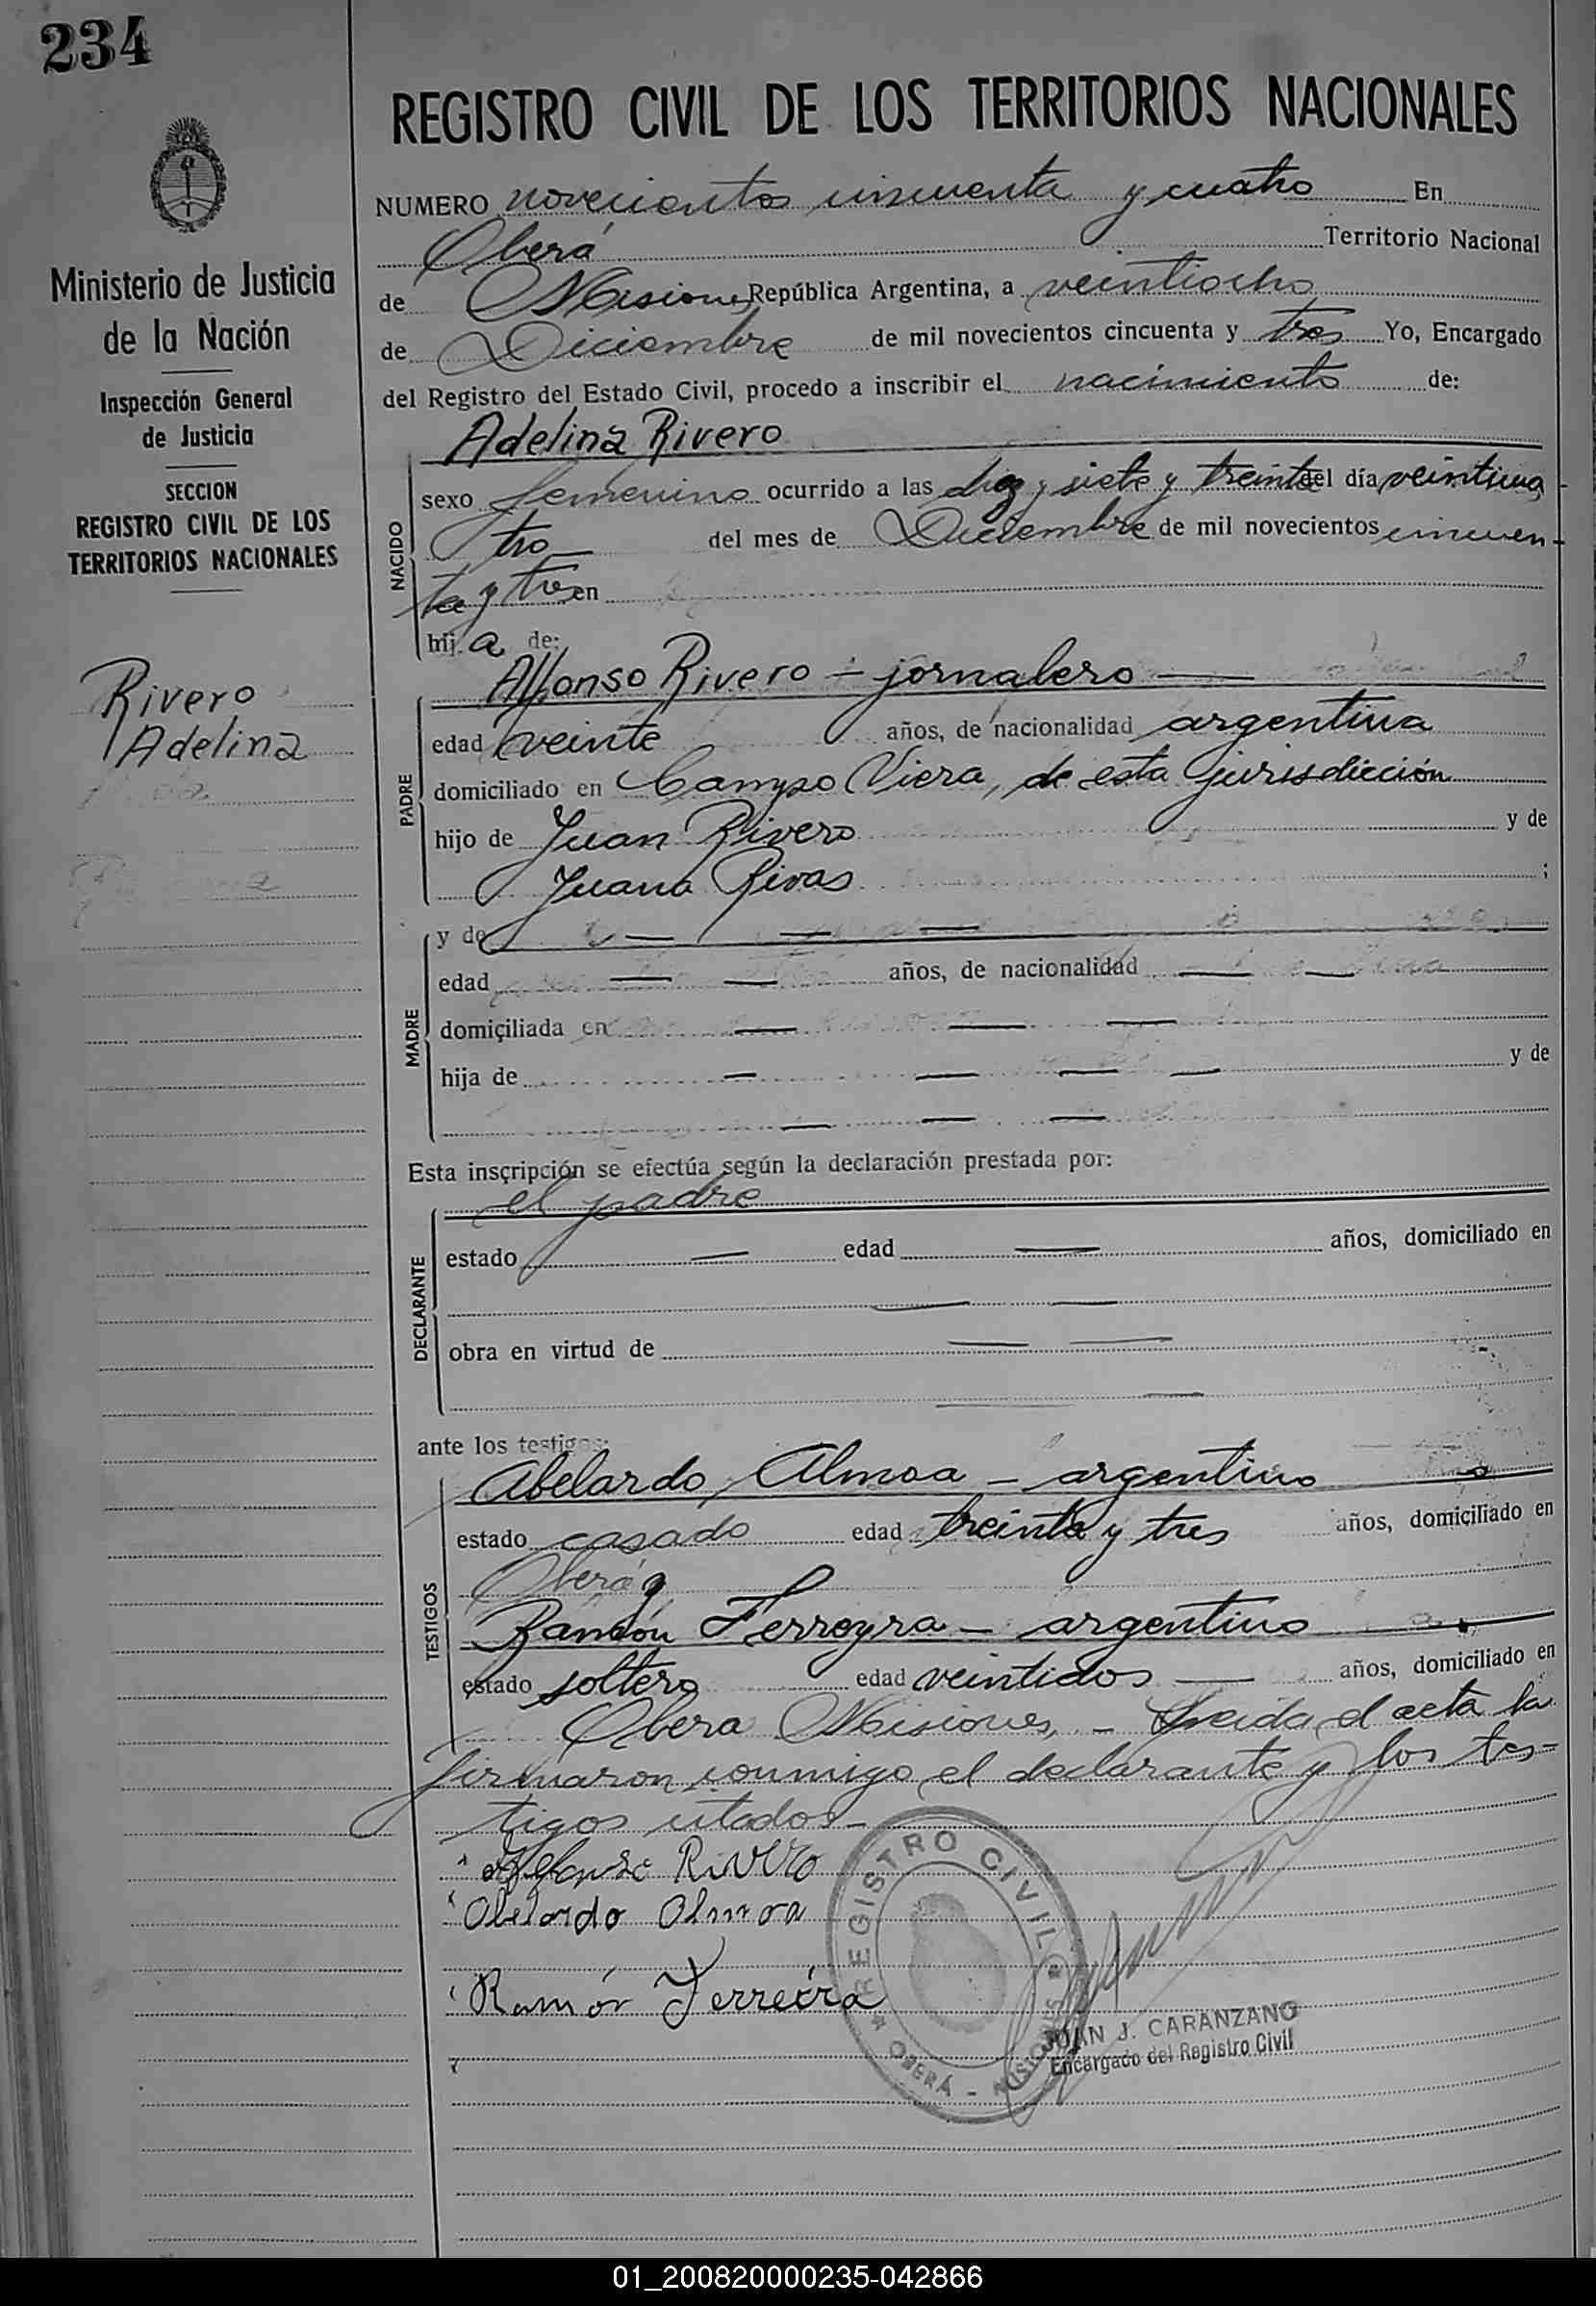 234
REGISTRO CIVIL DE LOS TERRITORIOS NACIONALES
NUMERO novecientos cincuenta y cuatro En
Oberá Territorio Nacional
de Misiones República Argentina, a veintiocho
de Diciembre de mil novecientos cincuenta y tres Yo, Encargado
del Registro del Estado Civil, procedo a inscribir el nacimiento de:
Ministerio de Justicia
de la Nación
Inspección General
de Justicia
SECCION
REGISTRO CIVIL DE LOS
TERRITORIOS NACIONALES
Rivero
Adelina
NACIDO
Adelina Rivero
sexo femenino ocurrido a las diez y siete y treinta del día veinticua
tro del mes de Diciembre de mil novecientos cincuen-
ta y tres en
hij a de:
PADRE
Alfonso Rivero - jornalero
edad veinte años, de nacionalidad argentina
domiciliado en Campo Viera, de esta jurisdicción
hijo de Juan Rivero y de
Juana Rivas ;
MADRE
y de
edad años, de nacionalidad
domiciliada en
hija de y de
Esta inscripción se efectúa según la declaración prestada por:
DECLARANTE
el padre
estado edad años, domiciliado en
obra en virtud de
ante los testigos:
TESTIGOS
Abelardo Almoa - argentino
estado casado edad treinta y tres años, domiciliado en
Oberá y
Ramón Ferreyra - argentino
estado soltero edad veintidos años, domiciliado en
Obera Misiones, - Leida el acta la
firmaron conmigo el declarante y los tes-
tigos citados-
Rivero
Abelardo Almoa
Ramón Ferreira
REGISTRO CIVIL
OBERÁ - MISIONES
JUAN J. CARANZANO
Encargado del Registro Civil
01_200820000235-042866